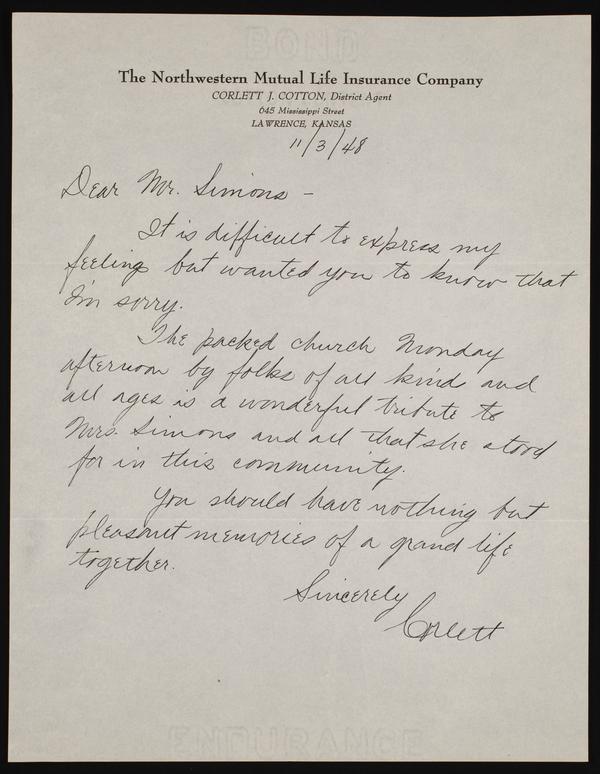 BOND
The Northwestern Mutual Life Insurance Company
CORLETT J. COTTON, District Agent
645 Mississippi Street
LAWRENCE, KANSAS
11/3/48
Dear Mr. Simons -
It is difficult to express my
feelings but wanted you to know that
I'm sorry.
The packed church Monday
afternoon by folks of all kinds and
all ages is a wonderful tribute to
Mrs. Simons and all that she stood
for in this community.
You should have nothing but
pleasant memories of a grand life
together.
Sincerely
Corlett
ENDURANCE